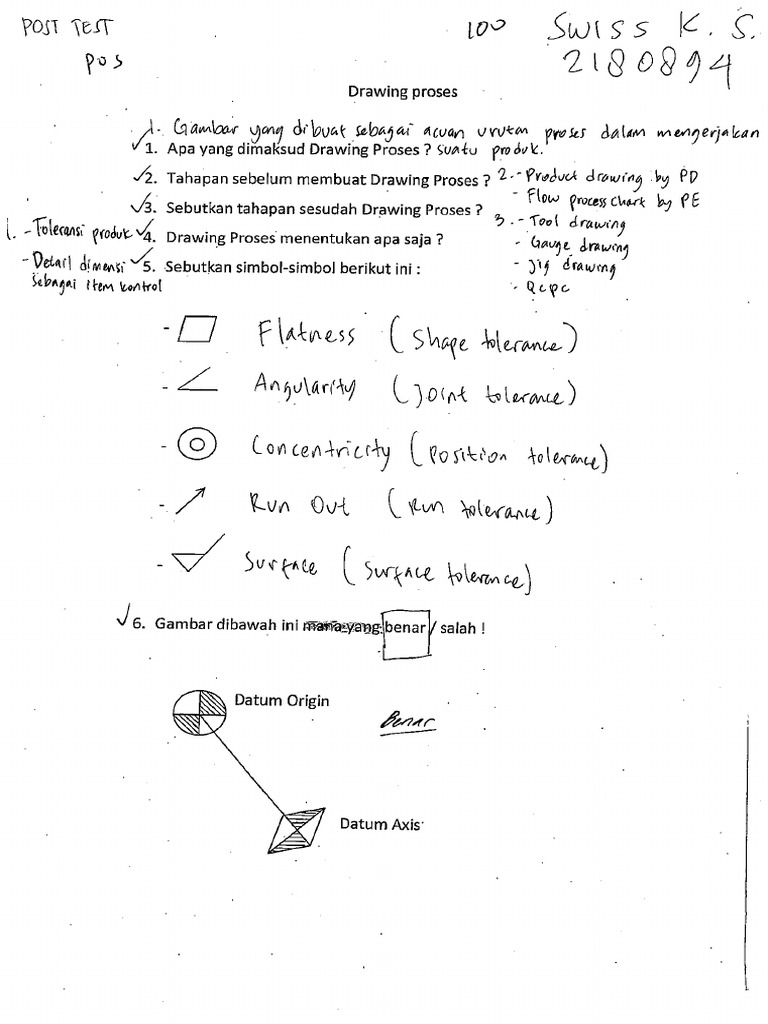 POST TEST
100
SWISS K. S.
pos
2180894
Drawing proses
1. Gambar yang dibuat sebagai acuan urutan proses dalam mengerjakan
1. Apa yang dimaksud Drawing Proses ? suatu produk.
2. Tahapan sebelum membuat Drawing Proses ? 2. - Product drawing by PD
- Flow process chart by PE
3. Sebutkan tahapan sesudah Drawing Proses ? 3. - Tool drawing
- Toleransi produk 4. Drawing Proses menentukan apa saja ? - Gauge drawing
- Detail dimensi 5. Sebutkan simbol-simbol berikut ini : - Jig drawing
sebagai item kontrol - QCPC
- Flatness (Shape tolerance)
- Angularity (Joint tolerance)
- Concentricity (Position tolerance)
- Run Out (Run tolerance)
- Surface (Surface tolerance)
6. Gambar dibawah ini mana yang benar / salah !
Datum Origin
Benar
Datum Axis